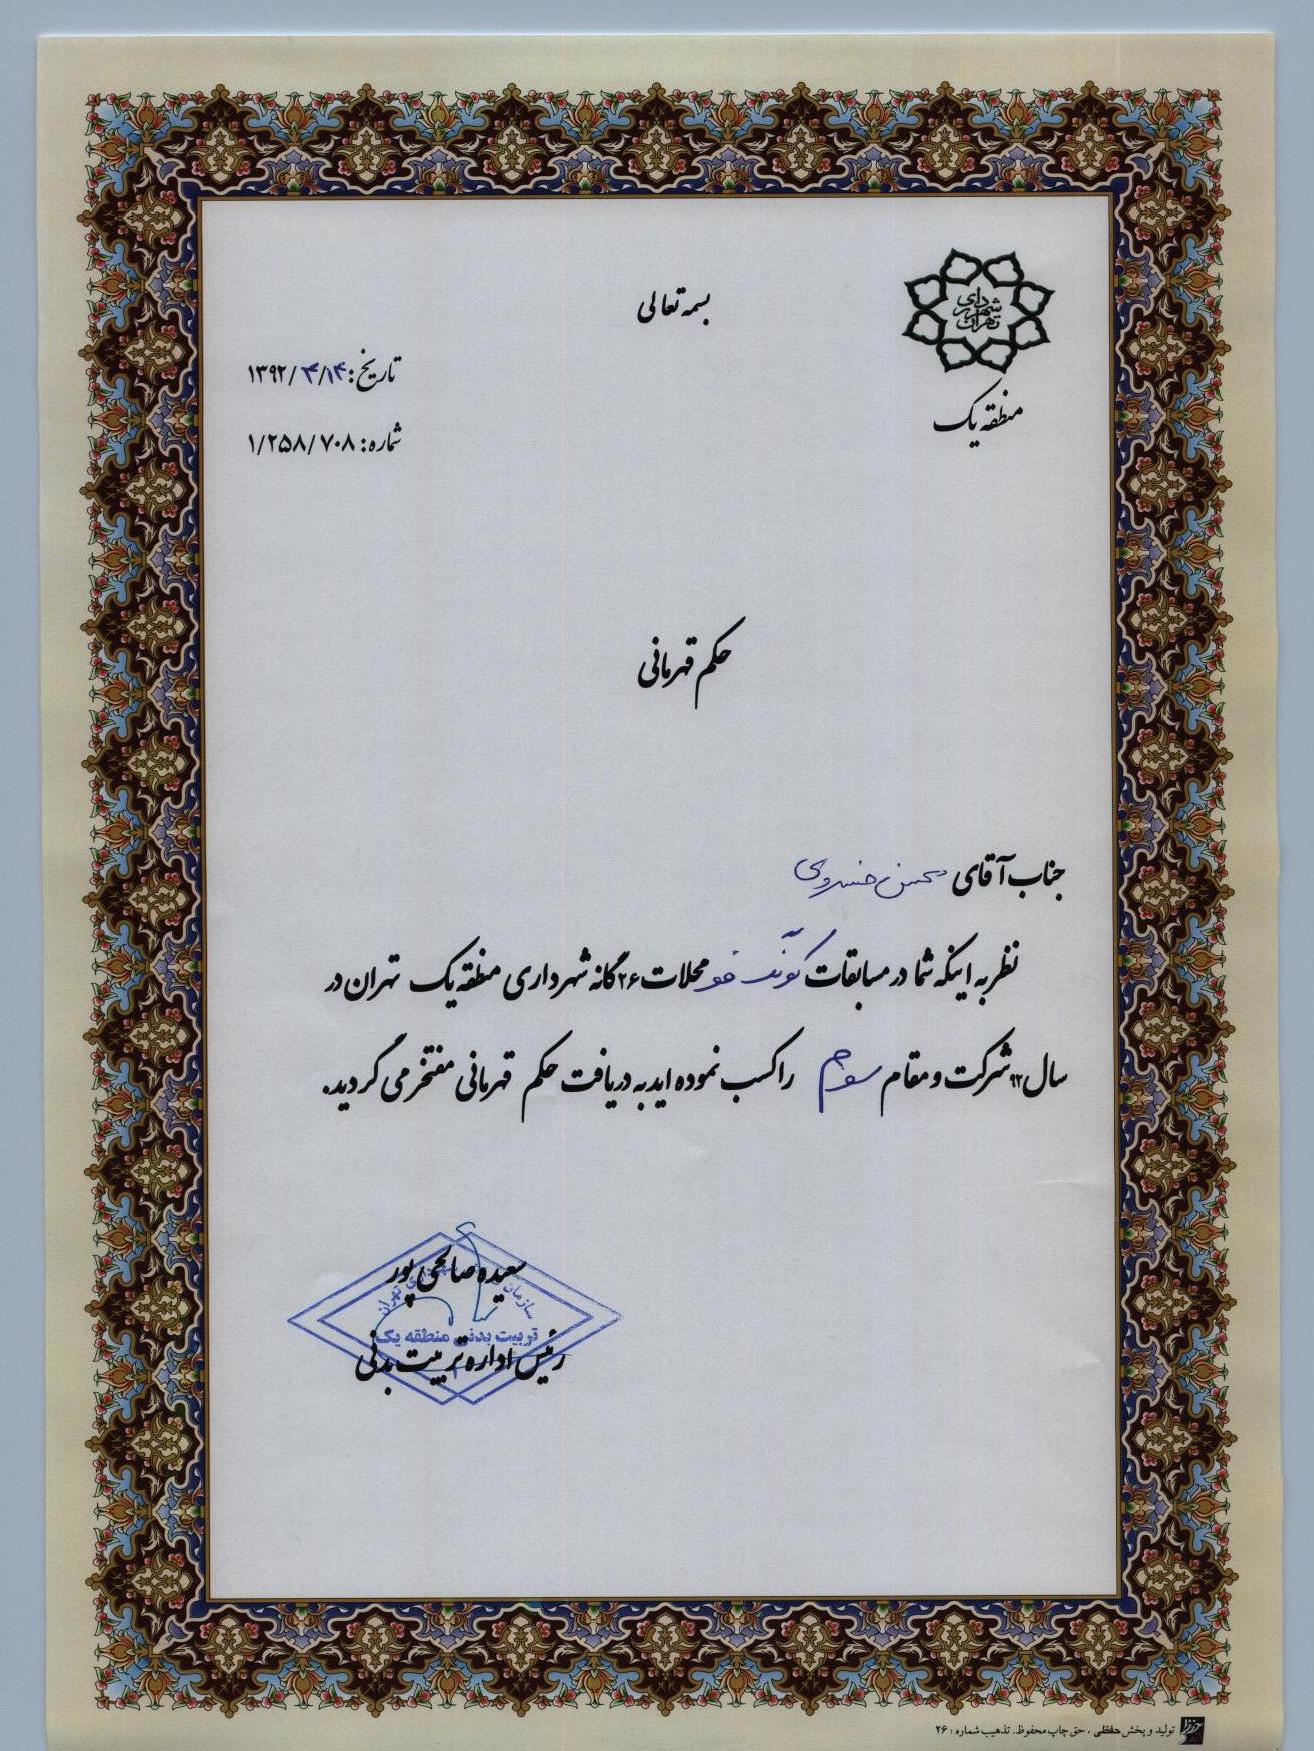 بسمه تعالی
شهرداری تهران
منطقه یک
تاریخ: ۱۳۹۲/۴/۱۴
شماره: ۱/۲۵۸/۷۰۸
حکم قهرمانی
جناب آقای محسن خسروی
نظر به اینکه شما در مسابقات محلات ۲۶ گانه شهرداری منطقه یک تهران در
سال ۹۲ شرکت و مقام سوم را کسب نموده اید به دریافت حکم قهرمانی مفتخر می گردید.
سعیده صالحی پور
سازمان تهران
تربیت بدنی منطقه یک
رئیس اداره تربیت بدنی
تولید و پخش حفظی ، حق چاپ محفوظ. تذهیب شماره : ۲۶